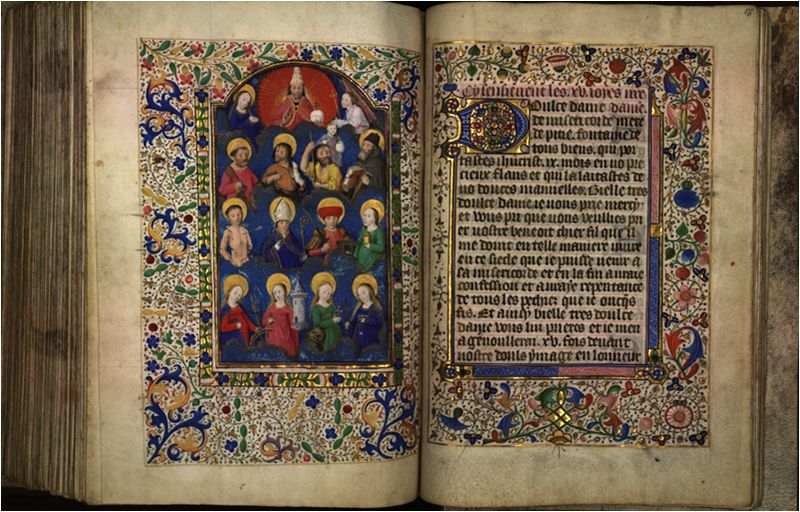 Cy sensuient les .xv. ioyes nre
Doulce dame dame
de misericorde mere
de pitie. fontaine de
tous biens. qui por
tastes ihucrist .ix. mois en uo pre
cieux flans et qui lalaitastes de
uo doulces mamelles. Bielle tres
doulce dame ie uous prie mercy
et uous pri que uous veullies pri
er nostre benoit chier fil que il
me doint en telle maniere uiure
en ce siecle que ie puisse uenir a
sa misericorde et en la fin auraie
confession et auraye repentance
de tous les pechiez que ie oncqs
fis. Et ainsy bielle tres doulce
dame vous lui prieres et ie men
agenoulleray. xv. fois deuant
nostre doulz ymage en lonneur